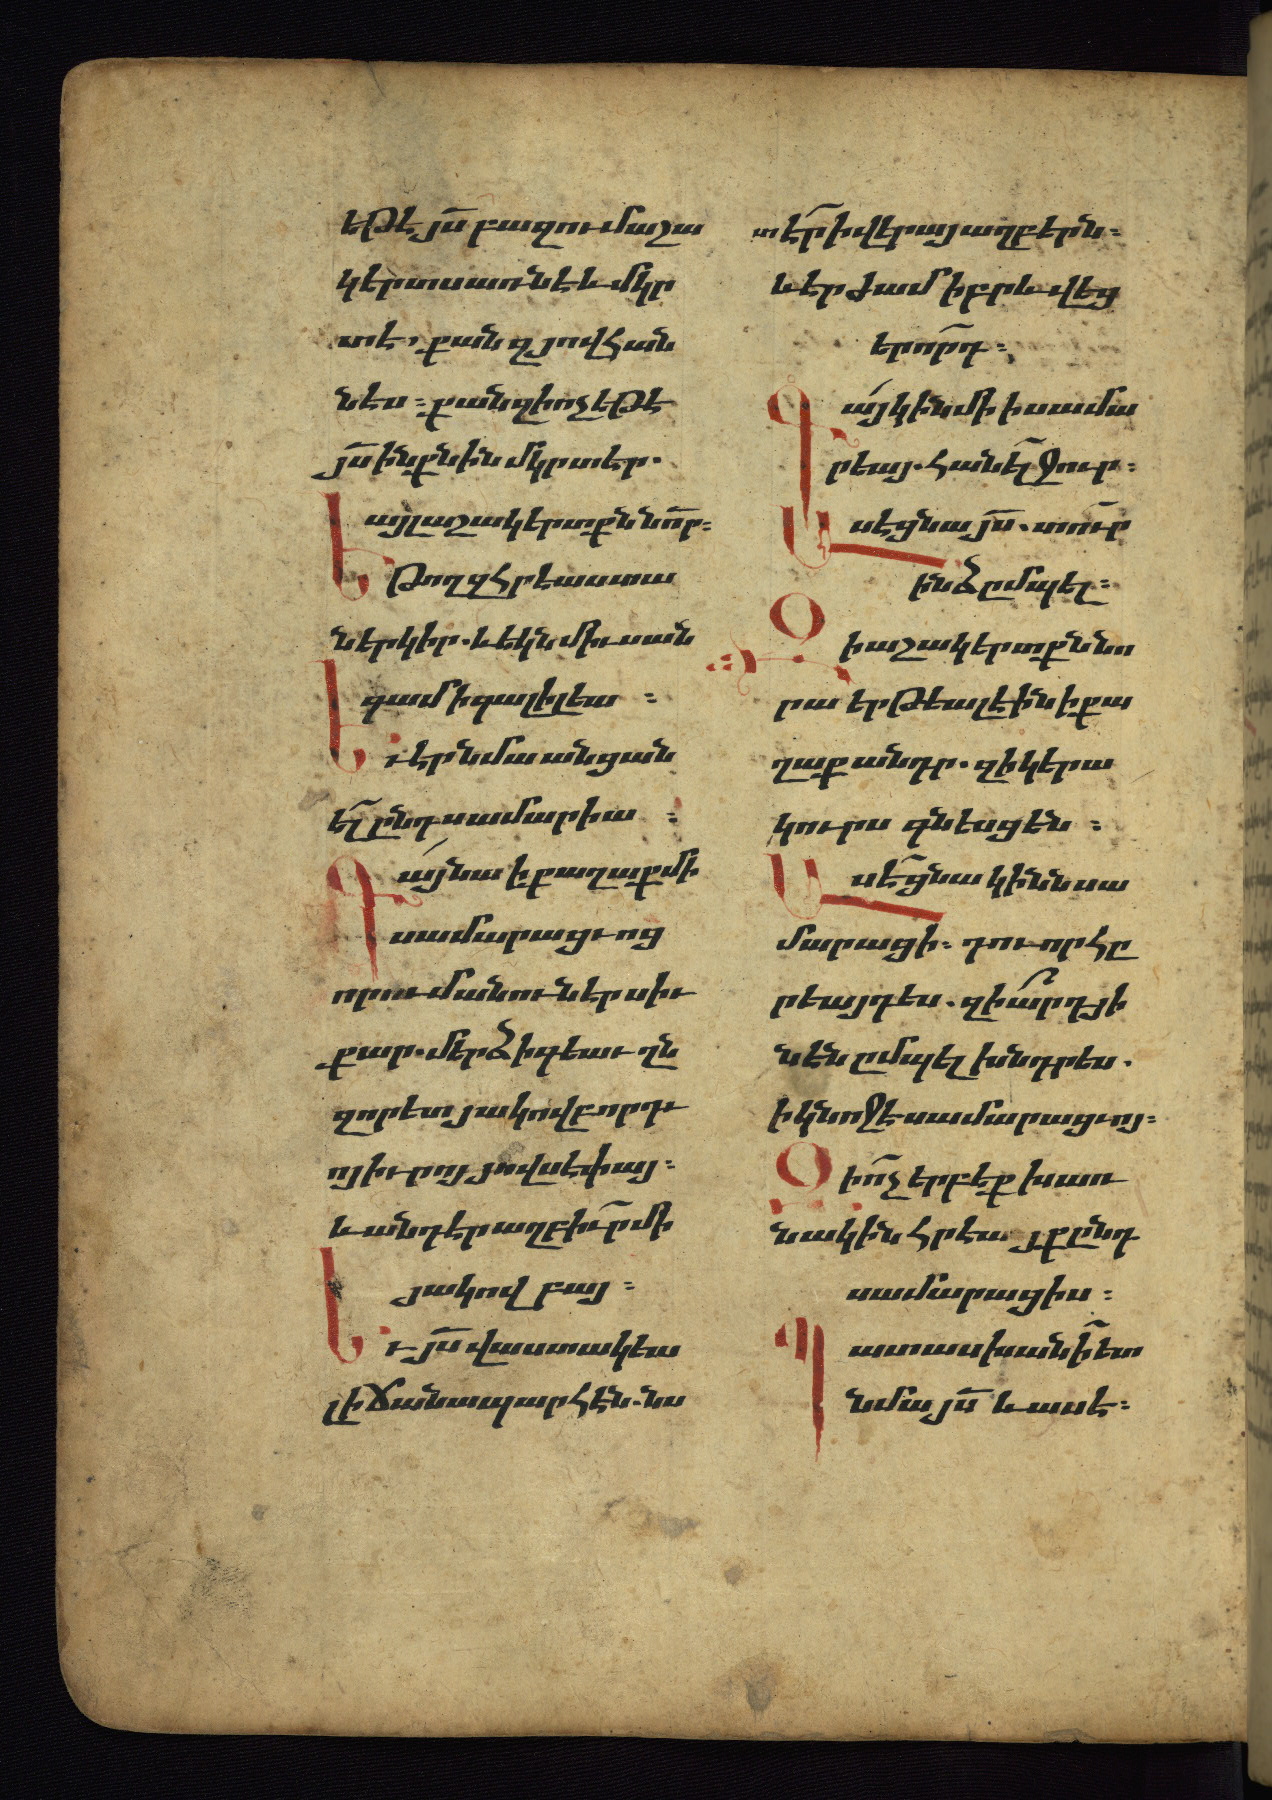 եթէ յս̄ բազում աշա
կերտս առնէ և մկր
տէ, քան զյովհան
նէս։ քանզի ոչ եթէ
յս̄ ինքնին մկրտէր.
այլ աշակերտքն նո̄ր։
Եթող զհրէաստա
ն երկիր. և եկն միւսան
գամ ի գալիլեա։
Եւ էր նմա անցան
ել̄ ընդ սամարիա։
Գա՛յ նա ի քաղաք մի
սամարացւոց
որում անուն էր սիւ
քար. մերձ ի գեաւղն
զոր ետ յակովբ որդւ
ոյ իւրոյ յովսեփայ։
և անդ էր աղբիւ̄ր մի
յակովբայ։
Եւ յս̄ վաստակեա
լ ի ճանապարհէն. նս
տէր̄ ի վերայ աղբերն։
և էր ժամ իբրև վեց
երո̄րդ։
Գա՛յ կին մի ի սամա
րեայ. հանել̄ ջուր։
Ասէ ցնա յս̄. տո՛ւր
ինձ ըմպել։
Զի աշակերտքն նո
րա երթեալ էին ի քա
ղաք անդր. զի կերա
կուրս գնեսցեն։
Ասէ̄ ցնա կինն սա
մարացի։ դու որ հը
րեայդ ես. զիա՞րդ յի
նէն ըմպել խնդրես.
ի կնոջէ սամարացւոյ։
Զի ո̄չ երբէք խառ
նակին հրէայք ընդ
սամարացիս։
Պատասխանի̄ ետ
նմա յս̄ և ասէ։